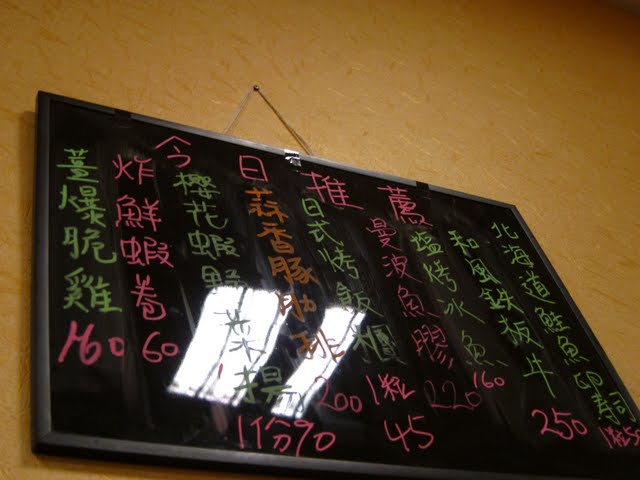 今日推薦
北海道鮭魚卵寿司 1粒50
和風鉄板牛 250
鹽烤冰魚 160
曼波魚膠 220
日式烤飯糰 1粒45
蒜香豚肋排 200
櫻花蝦野菜揚 1份90
炸鮮蝦卷 60
薑爆脆雞 160